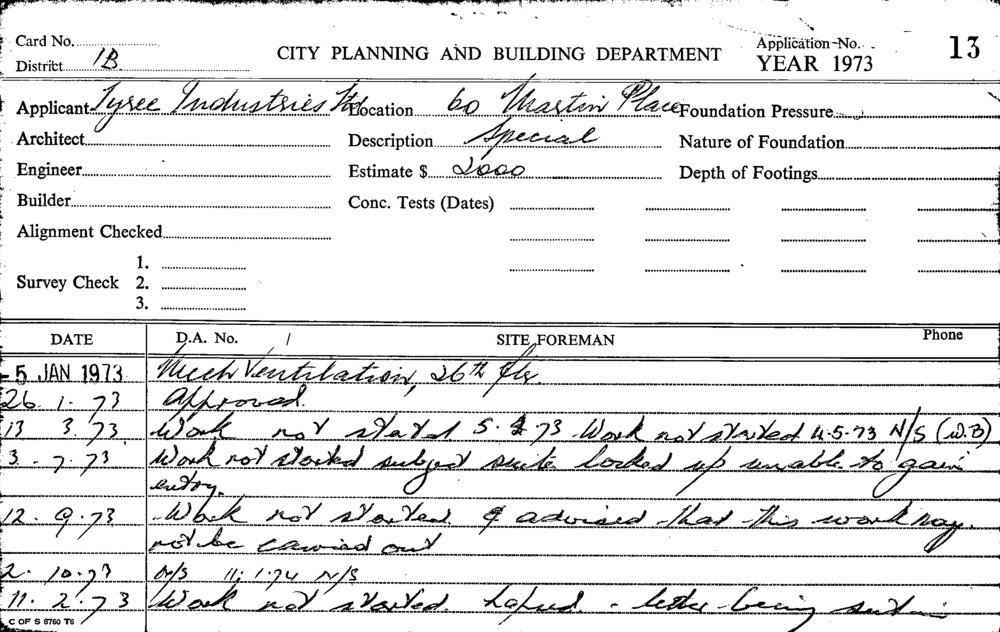 Card No. Application No. 13
District 1B CITY PLANNING AND BUILDING DEPARTMENT YEAR 1973
Applicant Tyree Industries Ltd Location 60 Martin Place Foundation Pressure
Architect Description Special Nature of Foundation
Engineer Estimate $ 2000 Depth of Footings
Builder Conc. Tests (Dates)
Alignment Checked
1.
Survey Check 2.
3.
DATE D.A. No. / SITE FOREMAN Phone
- 5 JAN 1973 Mech Ventilation, 26th flr.
26. 1. 73 Approved.
13 3. 73. Work not started 5. 73 Work not started 4.5.73 N/S (W.B)
3. 7. 73 Work not started subject suite locked up unable to gain
entry.
12. 9. 73 Work not started & advised that this work may
not be carried out
2. 10. 73 N/S 11. 1. 74 N/S
11. 2. 73 Work not started. Lapsed - letter being
C OF S 6760 T6